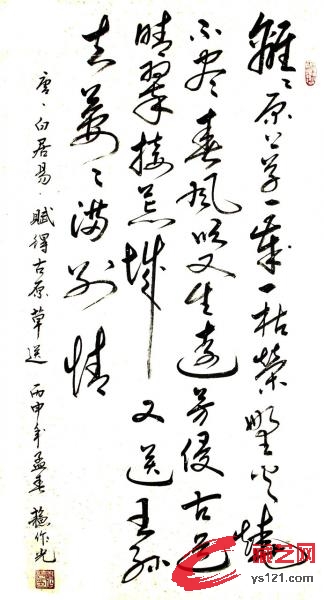 離〻原上草一歲一枯榮野火燒
不盡春風吹又生遠芳侵古道
晴翠接荒城又送王孫
去萋〻滿別情
唐、白居易、賦得古原草送 丙申年孟春
艺网
ys121.com